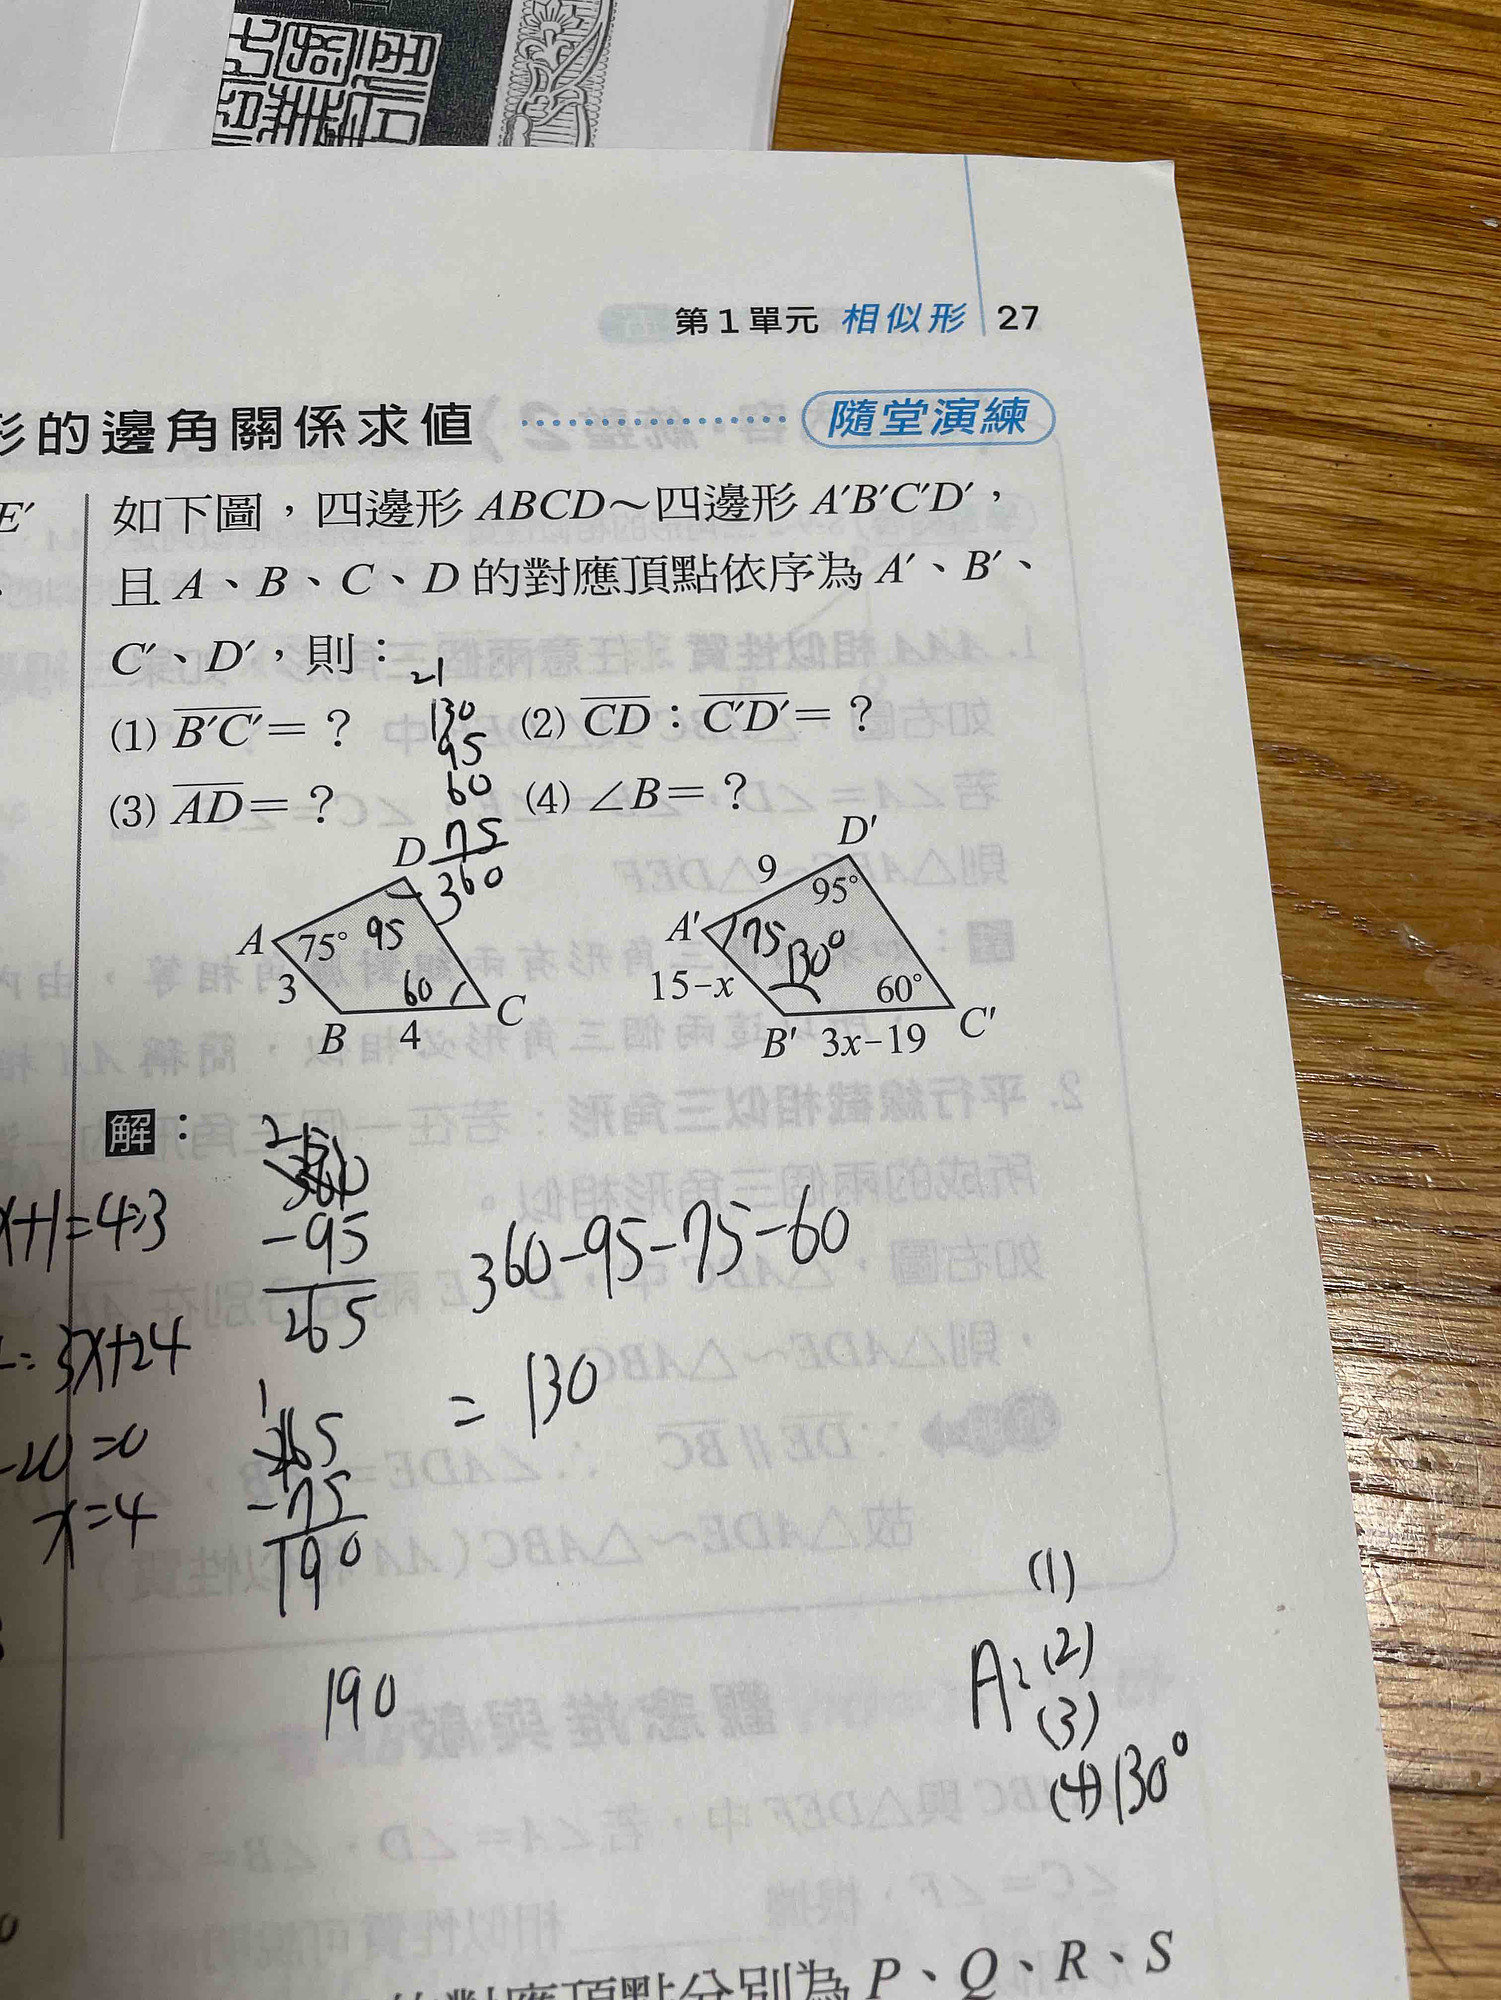 第1單元 相似形 27
形的邊角關係求值 隨堂演練
E′
如下圖，四邊形 ABCD～四邊形 A′B′C′D′，
且 A、B、C、D 的對應頂點依序為 A′、B′、
C′、D′，則：
(1) B′C′＝？ (2) CD：C′D′＝？
(3) AD＝？ (4) ∠B＝？
21
130
95
60
75
360
D
A 75° 95
3 60
B 4 C
D′
9 95°
A′ 75 130°
15−x 60°
B′ 3x−19 C′
解：
x+1=4:3
=3x+24
-20=0
x=4
360
-95
265
265
-75
190
190
360-95-75-60
=130
A: (1)
(2)
(3)
(4) 130°
的對應頂點分別為 P、Q、R、S